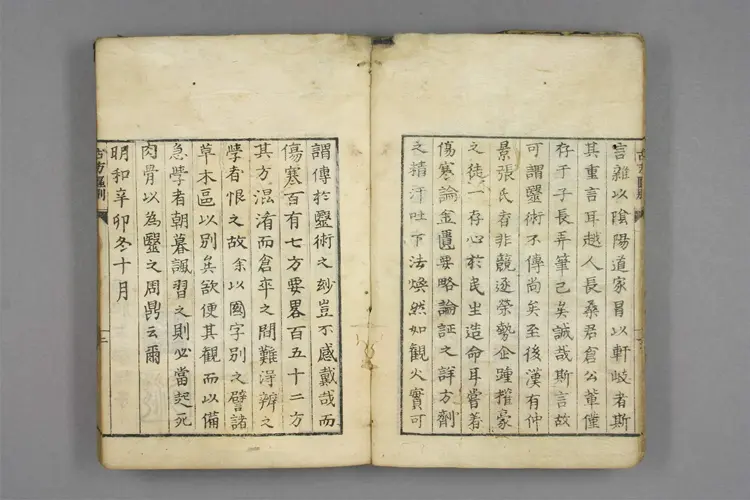 言雜以陰陽道家冐以軒岐者斯
其重言耳越人長桑君倉公輩僅
存于子長弄筆己矣誠哉斯言故
可謂毉術不傳尚矣至後漢有仲
景張氏者非競逐榮勢企踵權豪
之徒一存心於民生造命耳嘗着
傷寒論金匱要略論証之詳方劑
之精汗吐下法煥然如觀火實可
謂傳於毉術之妙豈不感戴哉而
傷寒百有七方要畧百五十二方
其方混淆而倉卒之間難得辨之
學者恨之故余以國字別之譬諸
草木區以別矣欲便其觀而以備
急學者朝暮諷習之則必當起死
肉骨以為毉之周鼎云爾
明和辛卯冬十月
古方區別
二